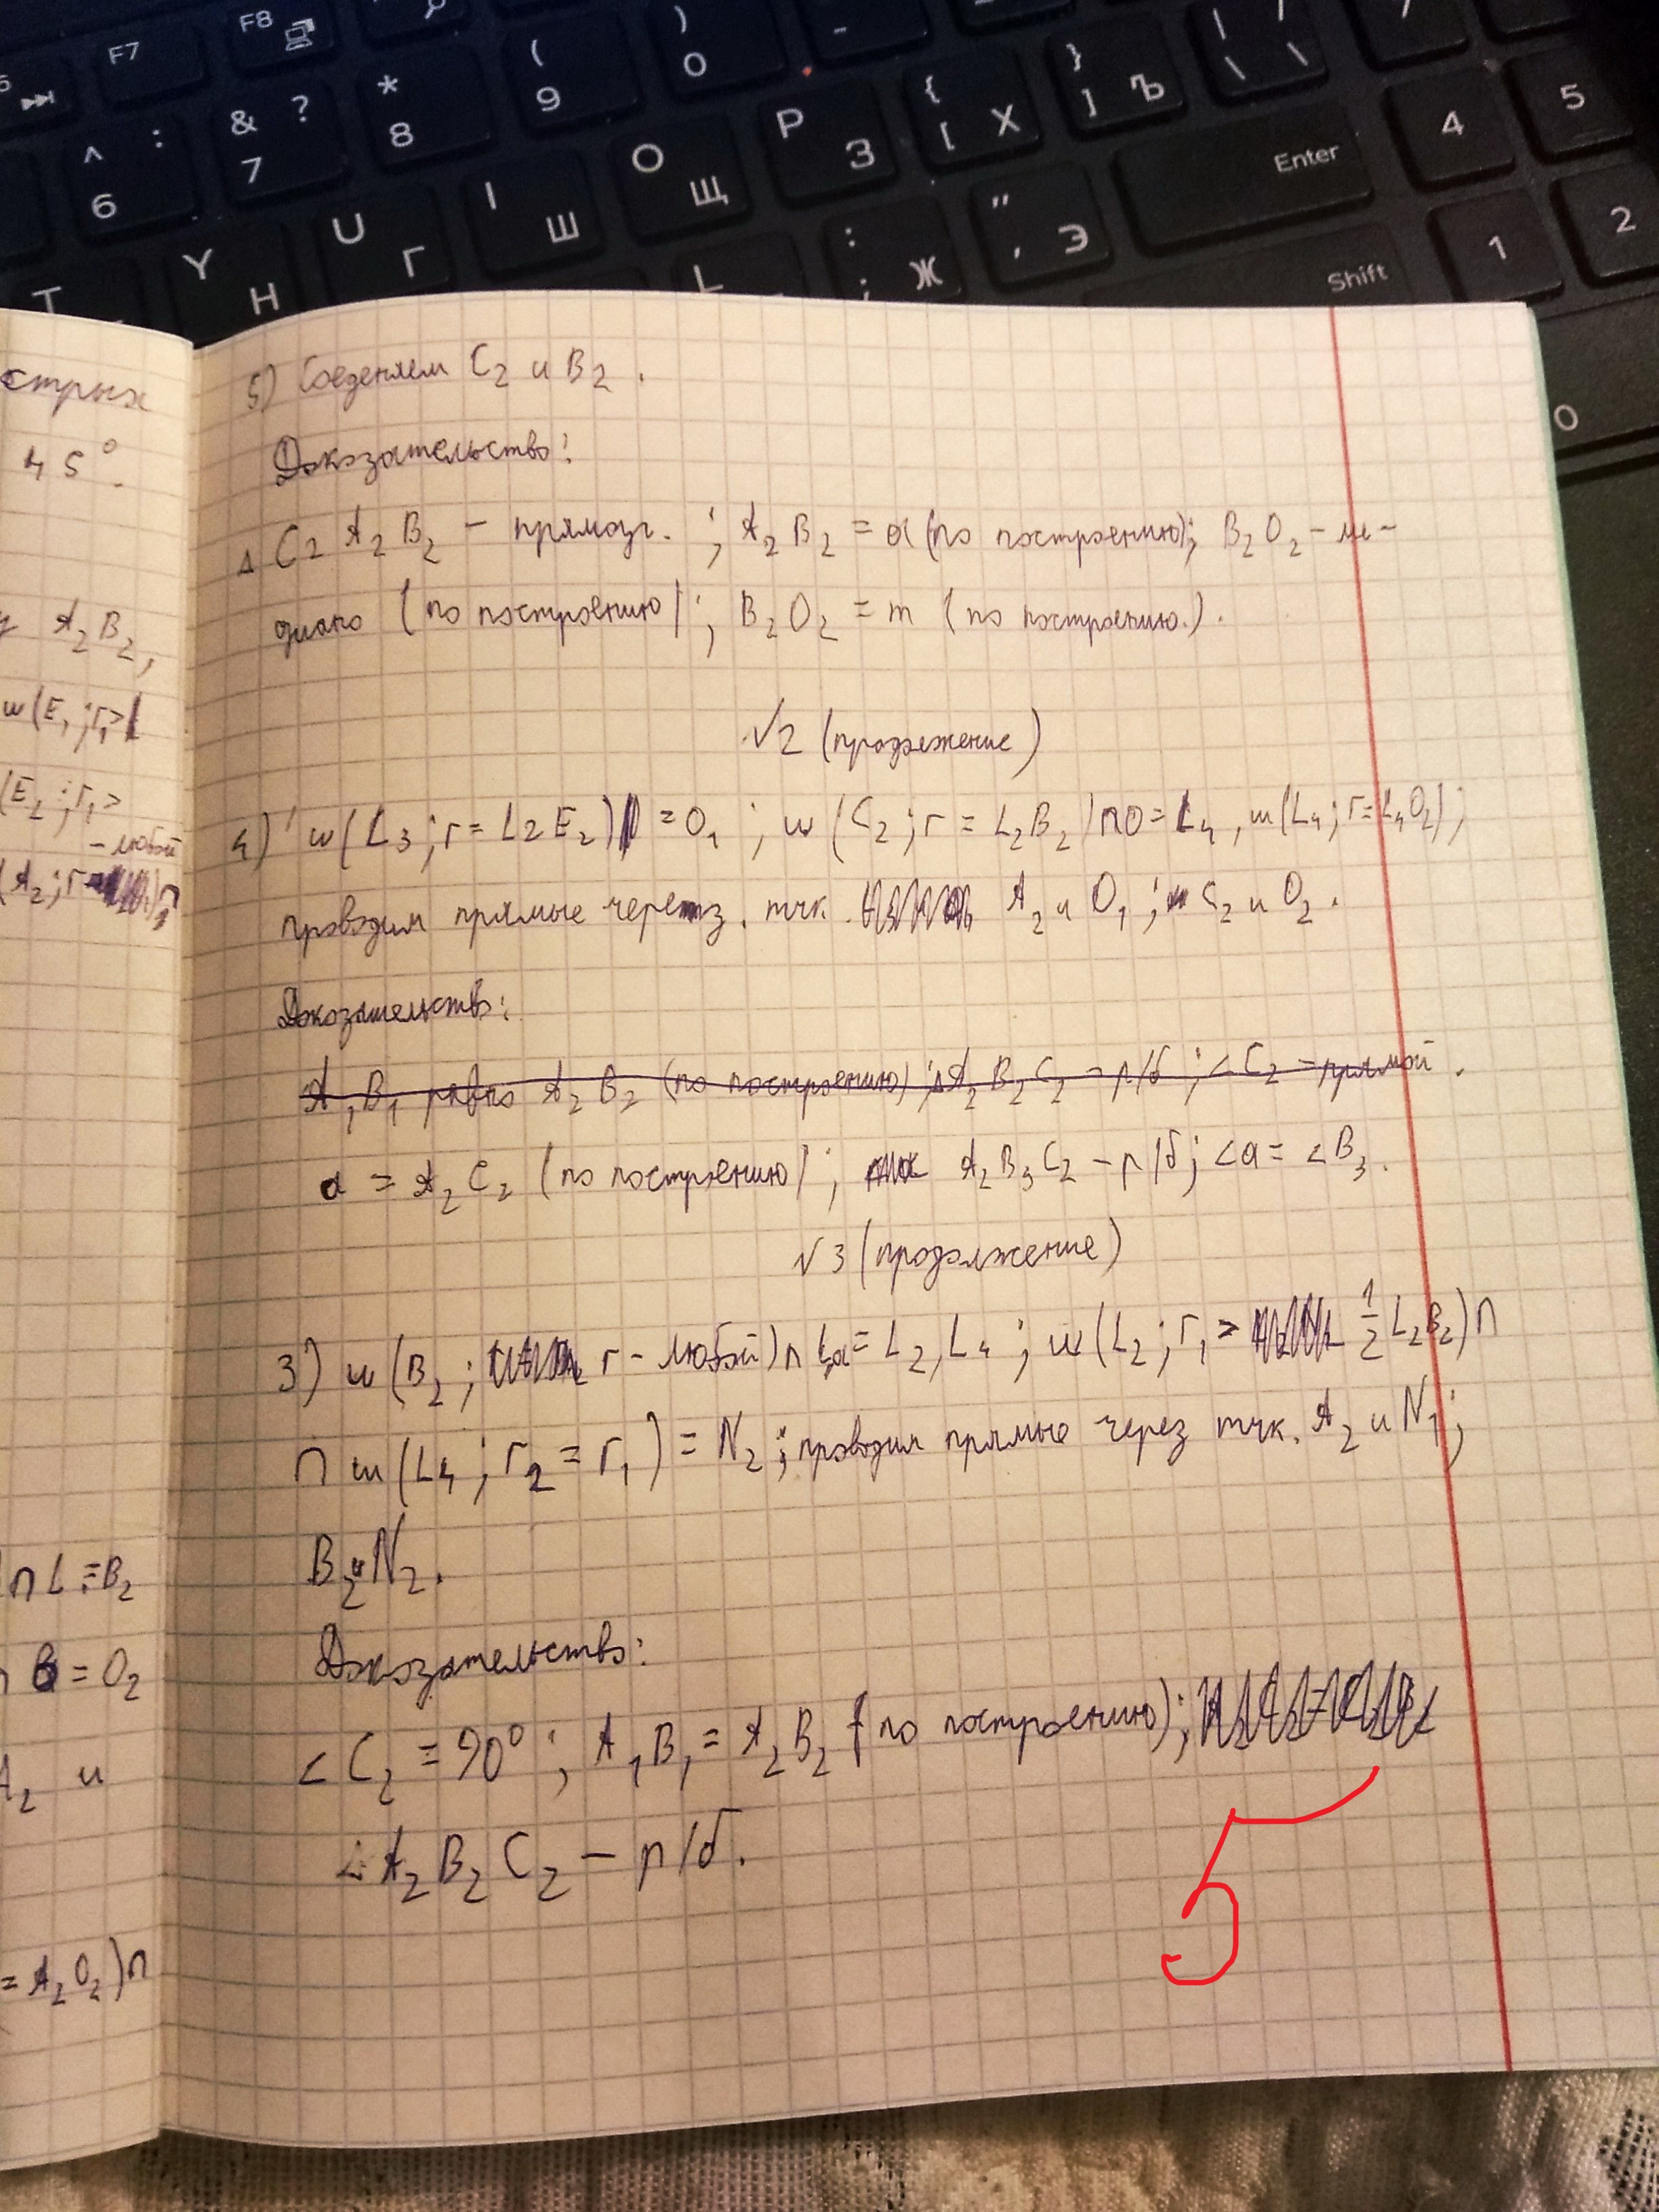 F7
F8
6
^ :
6
& ?
7
*
8
(
9
)
0
-
{
[ Х
}
] Ъ
|
\
/
\
4
5
T
Y
Н
U
Г
I
Ш
O
Щ
P
З
Enter
L
:
; Ж
"
' Э
Shift
1
2
0
стрых
45°.
A₂B₂,
ш(E₁; r₁>
(E₂; r₁>
- любой
(A₂; r
∩L=B₂
= O₂
A₂ и
= A₂O₂)∩
5) Соеденяем C₂ и B₂.
Доказательство:
△ C₂A₂B₂ - прямоуг. ; A₂B₂ = a (по построению); B₂O₂ - ме-
диана (по построению); B₂O₂ = m (по построению.).
√2 (продолжение)
4) ш(L₃; r = L₂E₂) = O₁ ; ш(C₂; r = L₂B₂)∩O = L₄, ш(L₄; r = L₄O₂);
проводим прямые через. тчк. A₂ и O₁ ; C₂ и O₂.
Доказательств:
A₁B₁ равно A₂B₂ (по построению); △A₂B₂C₂ - р/б ; <C₂ = прямой.
a = A₂C₂ (по построению); A₂B₃C₂ - р/б; <a = <B₃.
√3 (продолжение)
3) ш(B₂; r - любой)∩ = L₂, L₄ ; ш(L₂; r₁ > ½ L₂B₂)∩
∩ ш(L₄; r₂ = r₁) = N₂ ; проводим прямые через тчк. A₂ и N₁;
B₂ и N₂.
Доказательство:
<C₂ = 90° ; A₁B₁ = A₂B₂ (по построению);
△A₂B₂C₂ - р/б.
5